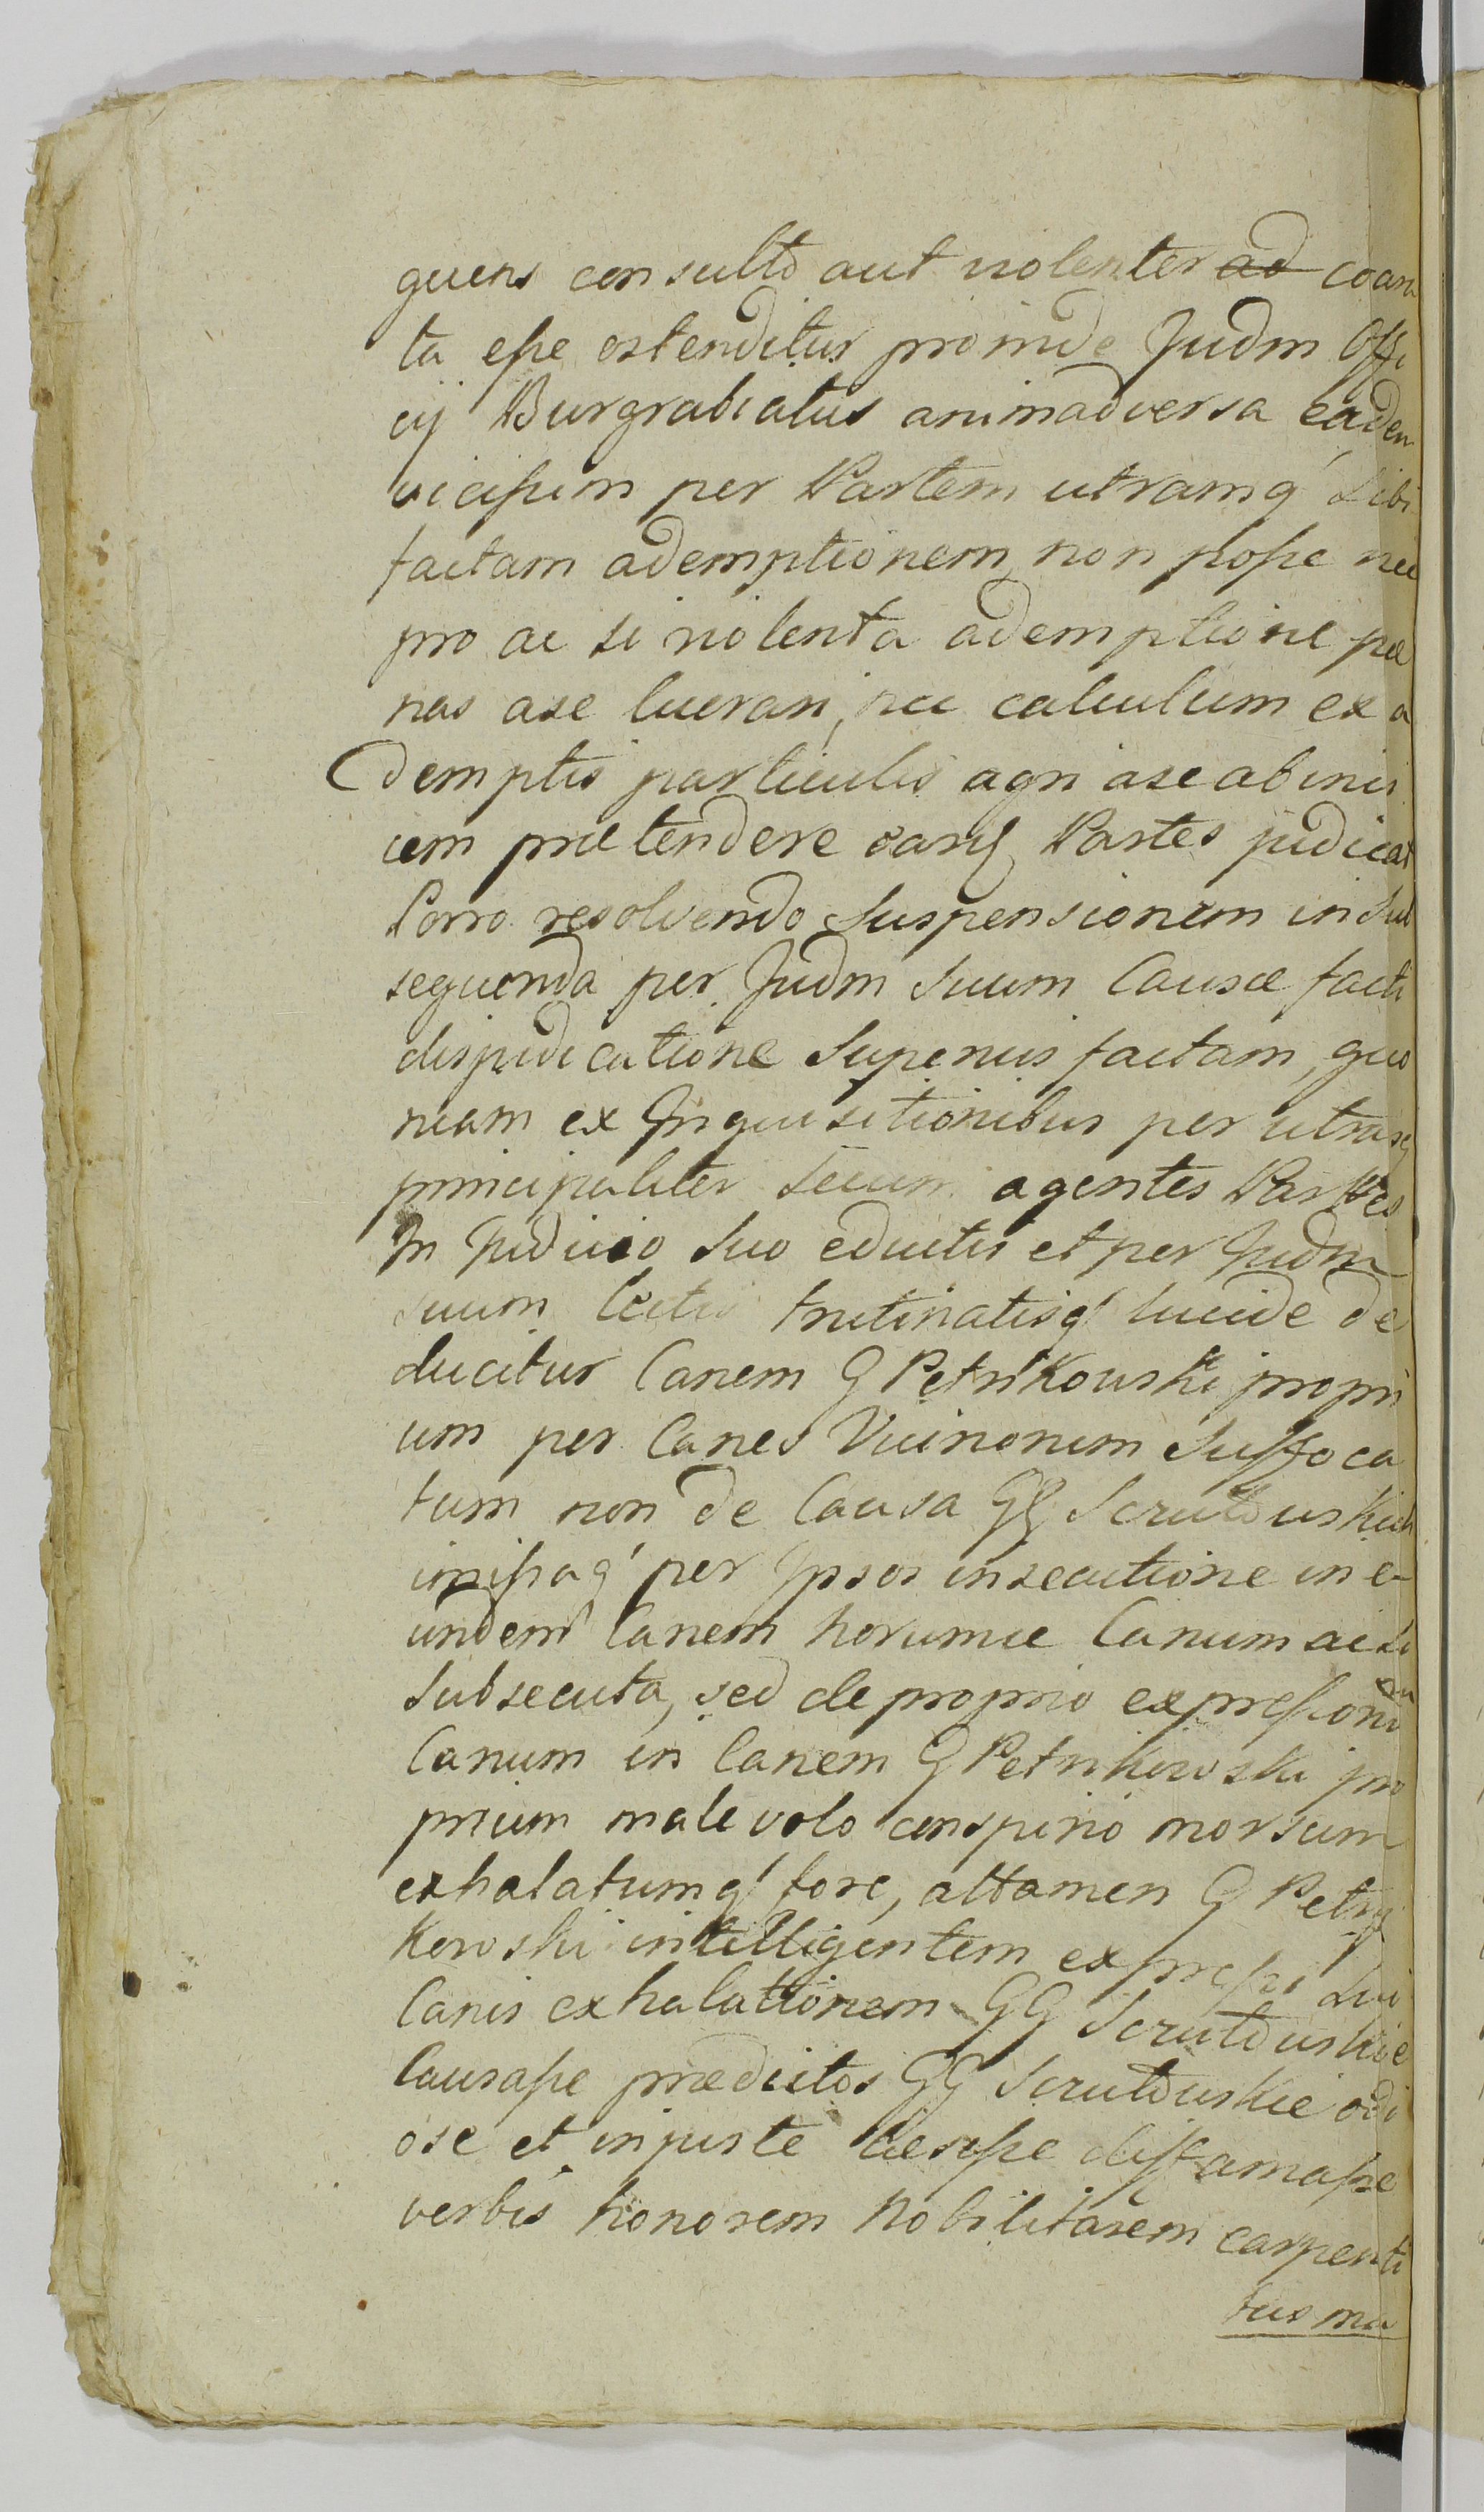 quens consulto aut violenter ad coara
ta esse ostenditur proinde Judm Offi
cij Burgrabiatus animadversa eadem
vicissim per Partem utramq' sibi
factam ademptionem, non posse nec
pro ac si violenta ademptione pæ
nas a se lucrari, nec calculum ex a
demptis particulis agri a se ab invi
cem prætendere easq Partes judicat
Porro resolvendo suspensionem in sub
sequenda per Judm suum Causæ facti
disjudicatione superius factam, quo
niam ex Inquisitionibus per utrasq
principaliter secum agentes Partes
In Judicio suo eductis et per Judm
suum lectis trutinatisq' lucide de
ducitur Canem G Petrikowski propri
um per Canes Vicinorum suffoca
tum non de Causa GG Scrutowskich
immissaq' per Ipsos insecutione in e-
undem Canem horumce Canum ac si
subsecuta, sed de proprio expressorum
Canum in Canem G Petrikowski pro
prium malevolo conspirio morsum
exhalatumq' fore, attamen G Petry
kowski intelligentem expressi sui
Canis exhalationem GG Scrutowskie
Causasse prædictos GG Scrutowskie odi
ose et injuste diffamasse
verbis honorem Nobilitarem carpenti
bus ma